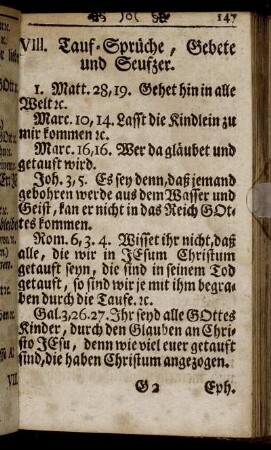 )o( 147
VIII. Tauf-Sprüche, Gebete
und Seufzer.
1. Matt. 28, 19. Gehet hin in alle
Welt ꝛc.
Marc. 10, 14. Lasst die Kindlein zu
mir kommen ꝛc.
Marc. 16, 16. Wer da gläubet und
getauft wird.
Joh. 3, 5. Es sey denn, daß jemand
gebohren werde aus dem Wasser und
Geist, kan er nicht in das Reich GOt-
tes kommen.
Rom. 6, 3. 4. Wisset ihr nicht, daß
alle, die wir in JEsum Christum
getauft seyn, die sind in seinem Tod
getauft, so sind wir je mit ihm begra-
ben durch die Taufe. ꝛc.
Gal. 3, 26. 27. Ihr seyd alle GOttes
Kinder, durch den Glauben an Chri-
sto JEsu, denn wie viel euer getauft
sind, die haben Christum angezogen.
G 2 Eph.